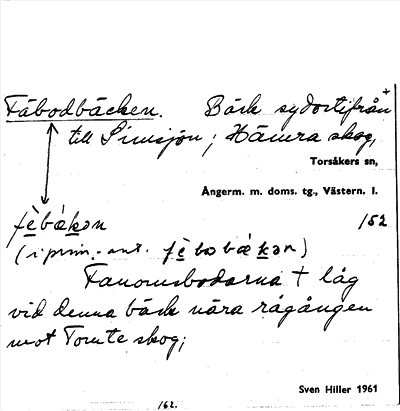 Fäbodbäcken. Bäck sydostifrån +
till Simsjön; Hämra skog,
Torsåkers sn,
Ångerm. m. doms. tg., Västern. l.
fèbǽkən 152
(i prim.-ant. fèbobǽkən)
Fanomsbodarna † låg
vid denna bäck nära rågången
mot Tomte skog;
Sven Hiller 1961
162.